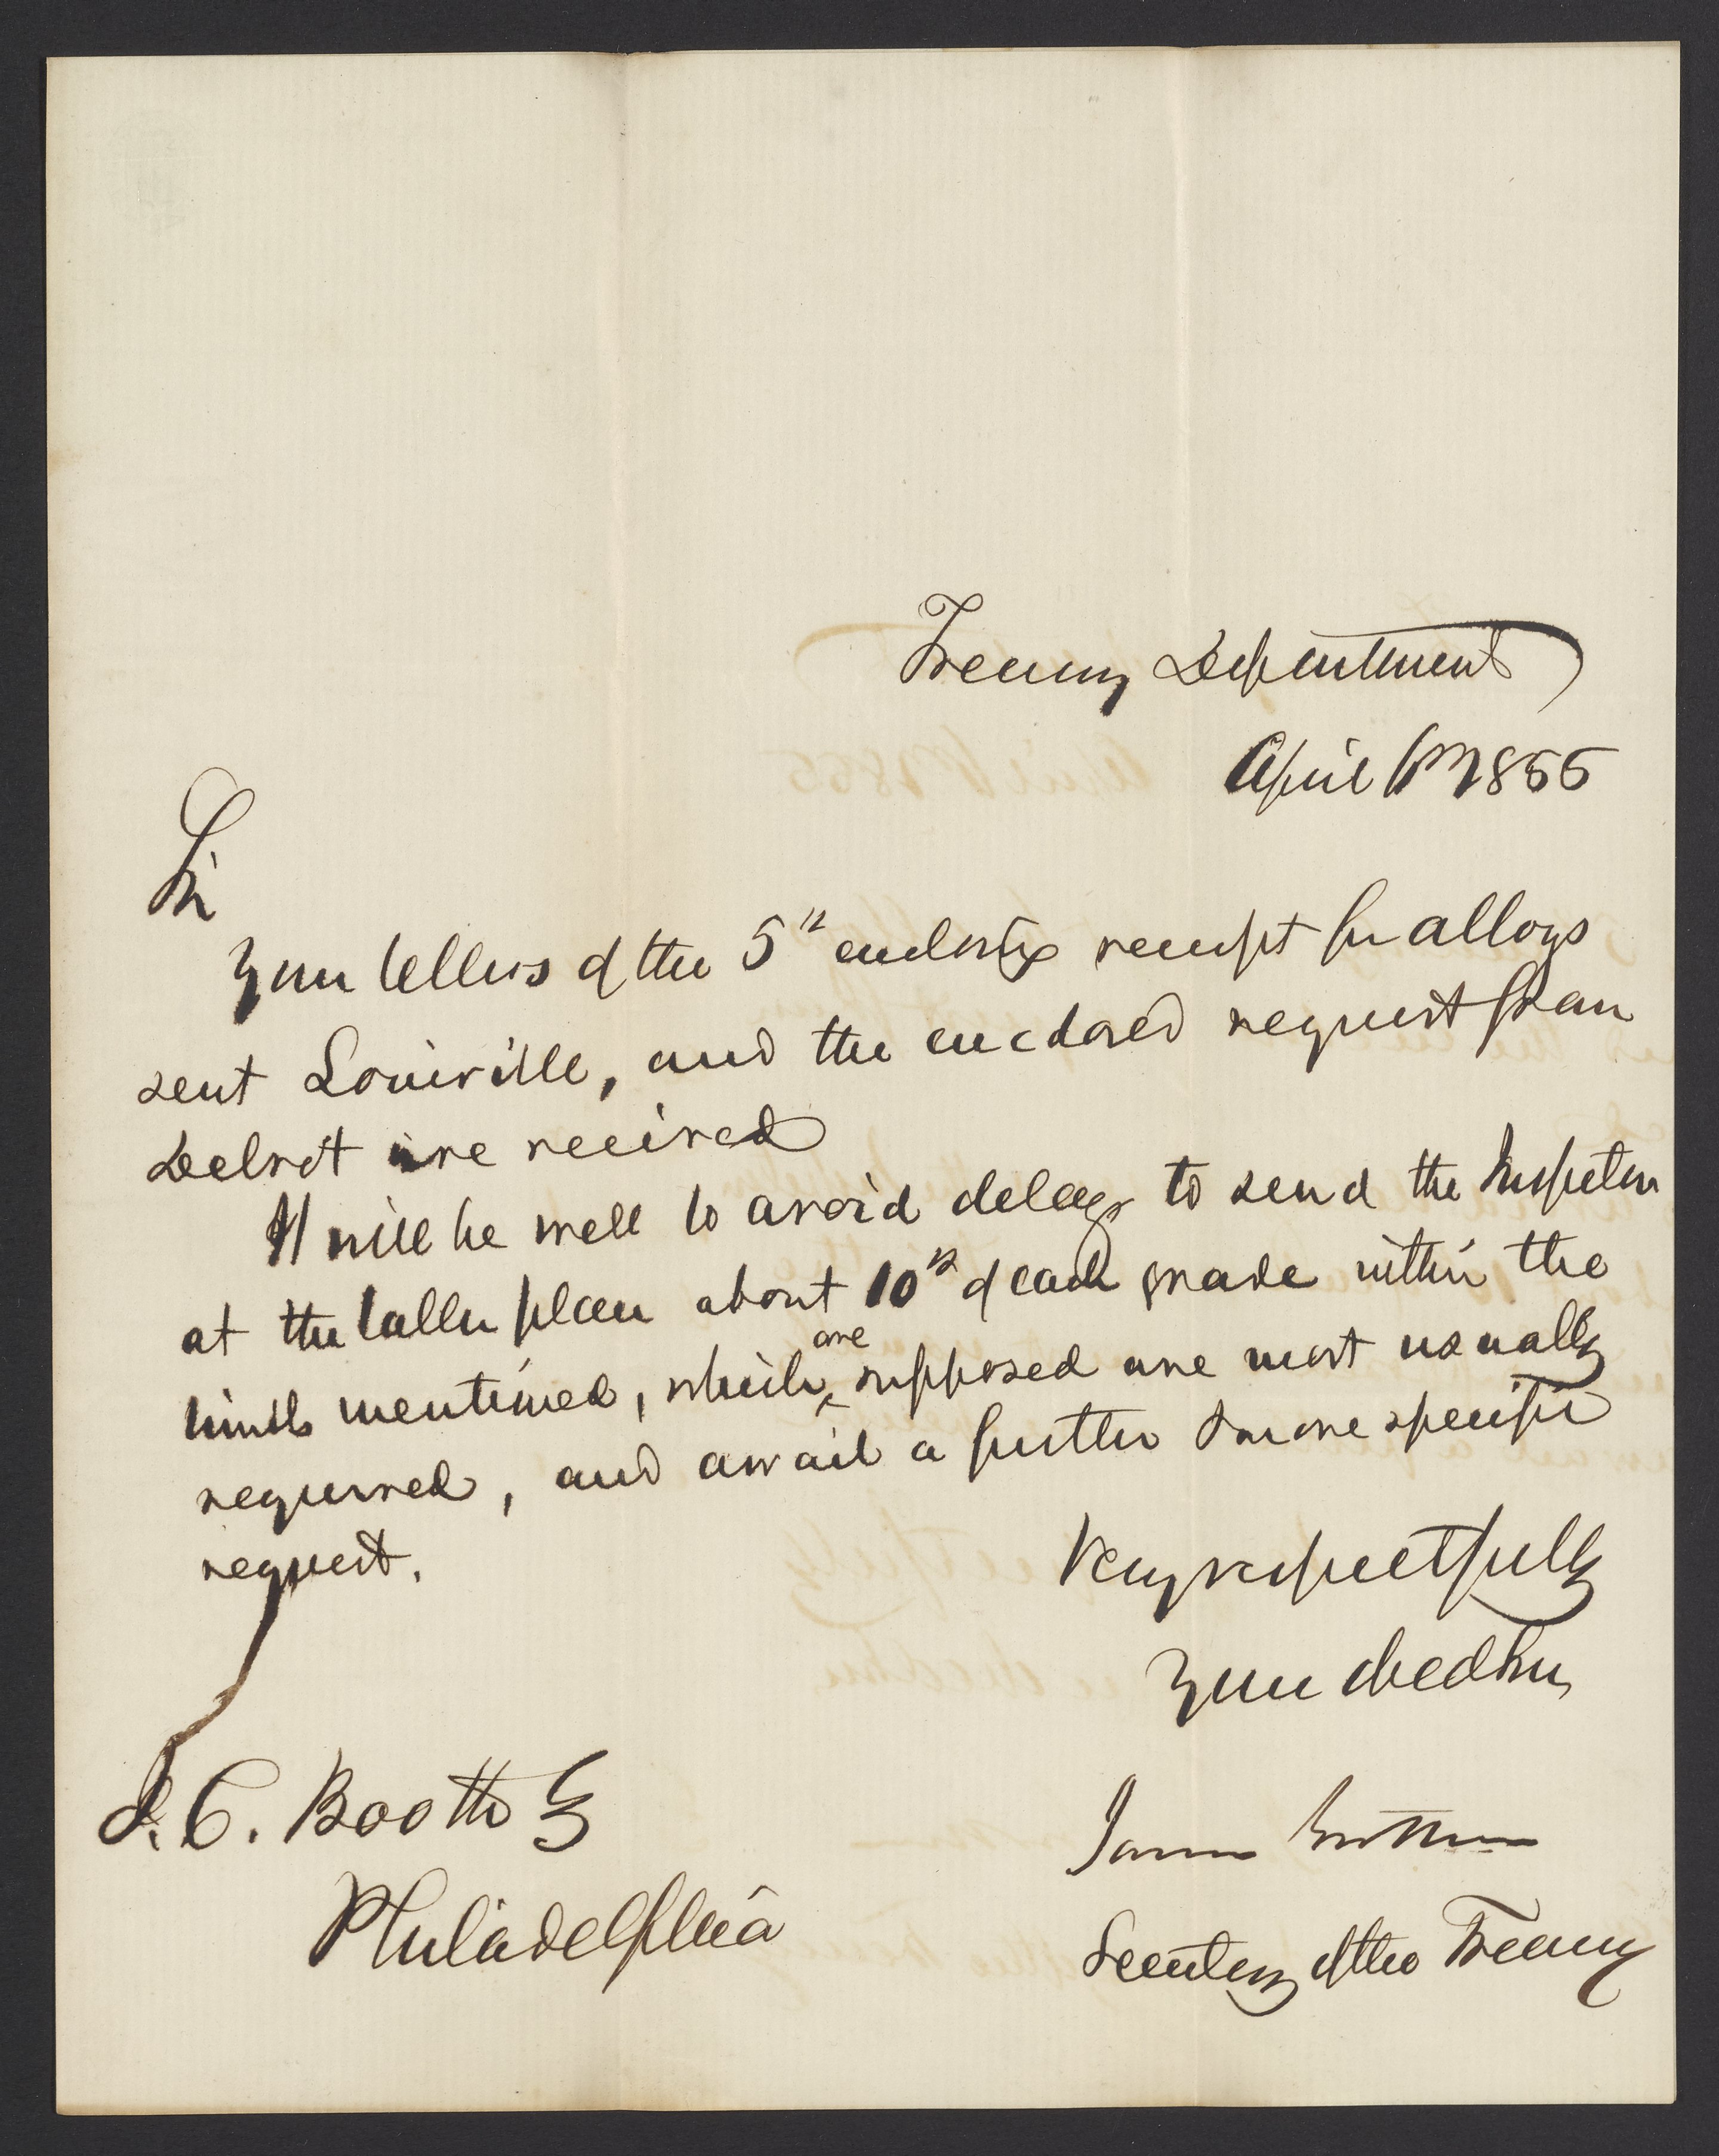 Treasury Department
April 6th 1855
Sir
Your letters of the 5th enclosing receipt for alloys
sent Louisville, and the enclosed request from
Detroit are received
It will be well to avoid delay to send the Inspector
at the latter place about 10 lb of each grade within the
limits mentioned, which are supposed are most usually
required, and await a further & more specific
request.
Very respectfully
Your obedt svt
James Guthrie
Secretary of the Treasury
J. C. Booth Esq
Philadelphia